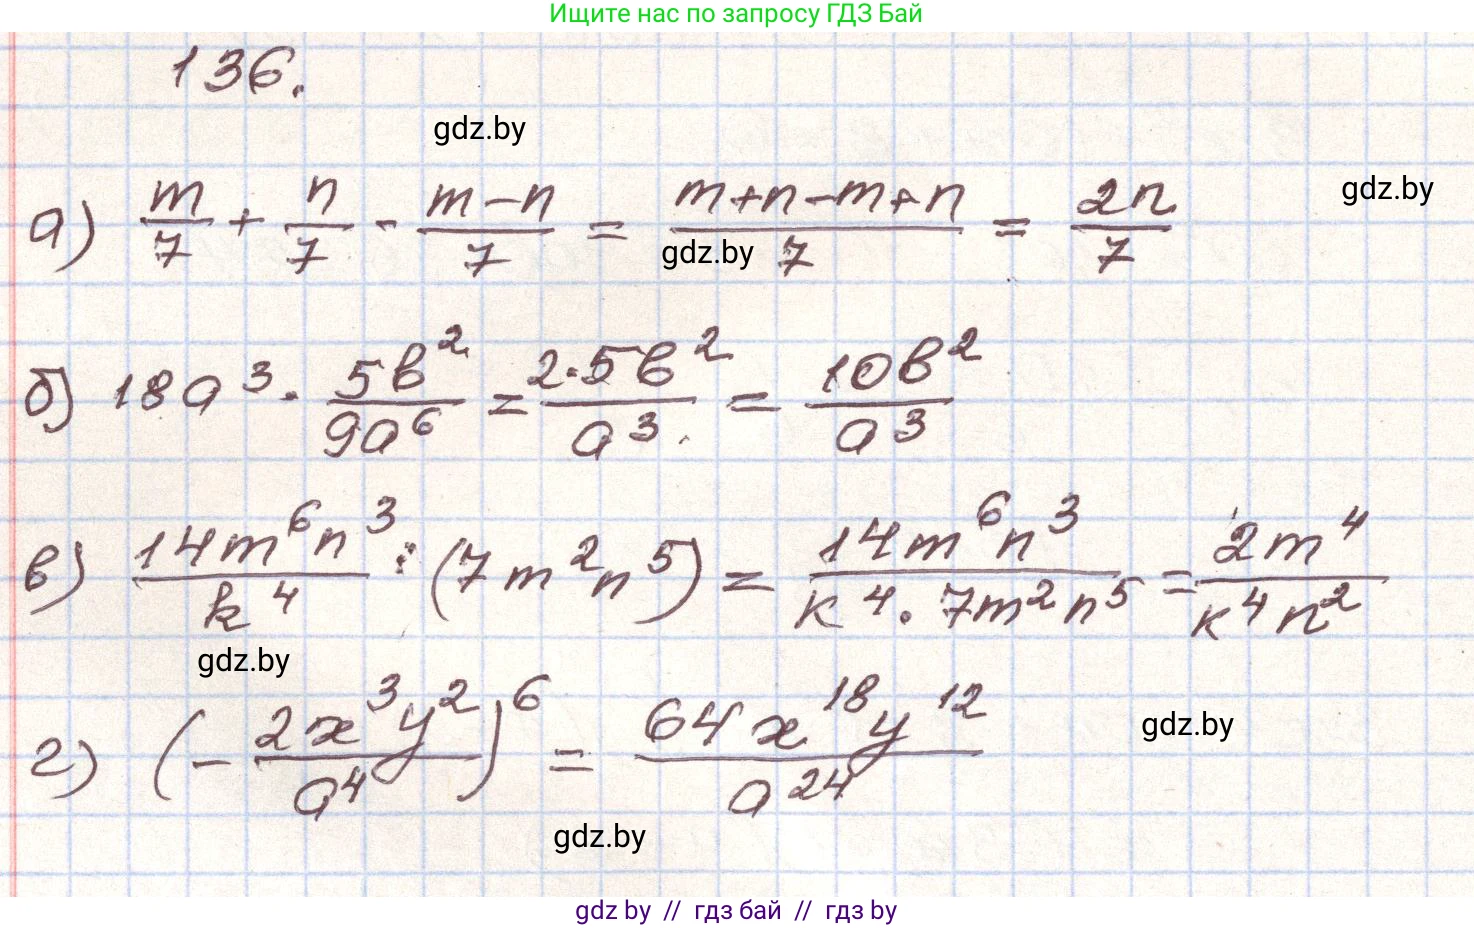 Ищите нас по запросу ГДЗ Бай
136.
gdz.by
а) m/7 + n/7 - (m-n)/7 = (m+n-m+n)/7 = 2n/7
gdz.by
gdz.by
б) 18a³ · 5b²/9a⁶ = 2·5b²/a³ = 10b²/a³
в) 14m⁶n³/k⁴ : (7m²n⁵) = 14m⁶n³/k⁴·7m²n⁵ = 2m⁴/k⁴n²
gdz.by
г) (-2x³y²/a⁴)⁶ = 64x¹⁸y¹²/a²⁴
gdz.by
gdz.by
gdz by // гдз бай // гдз by